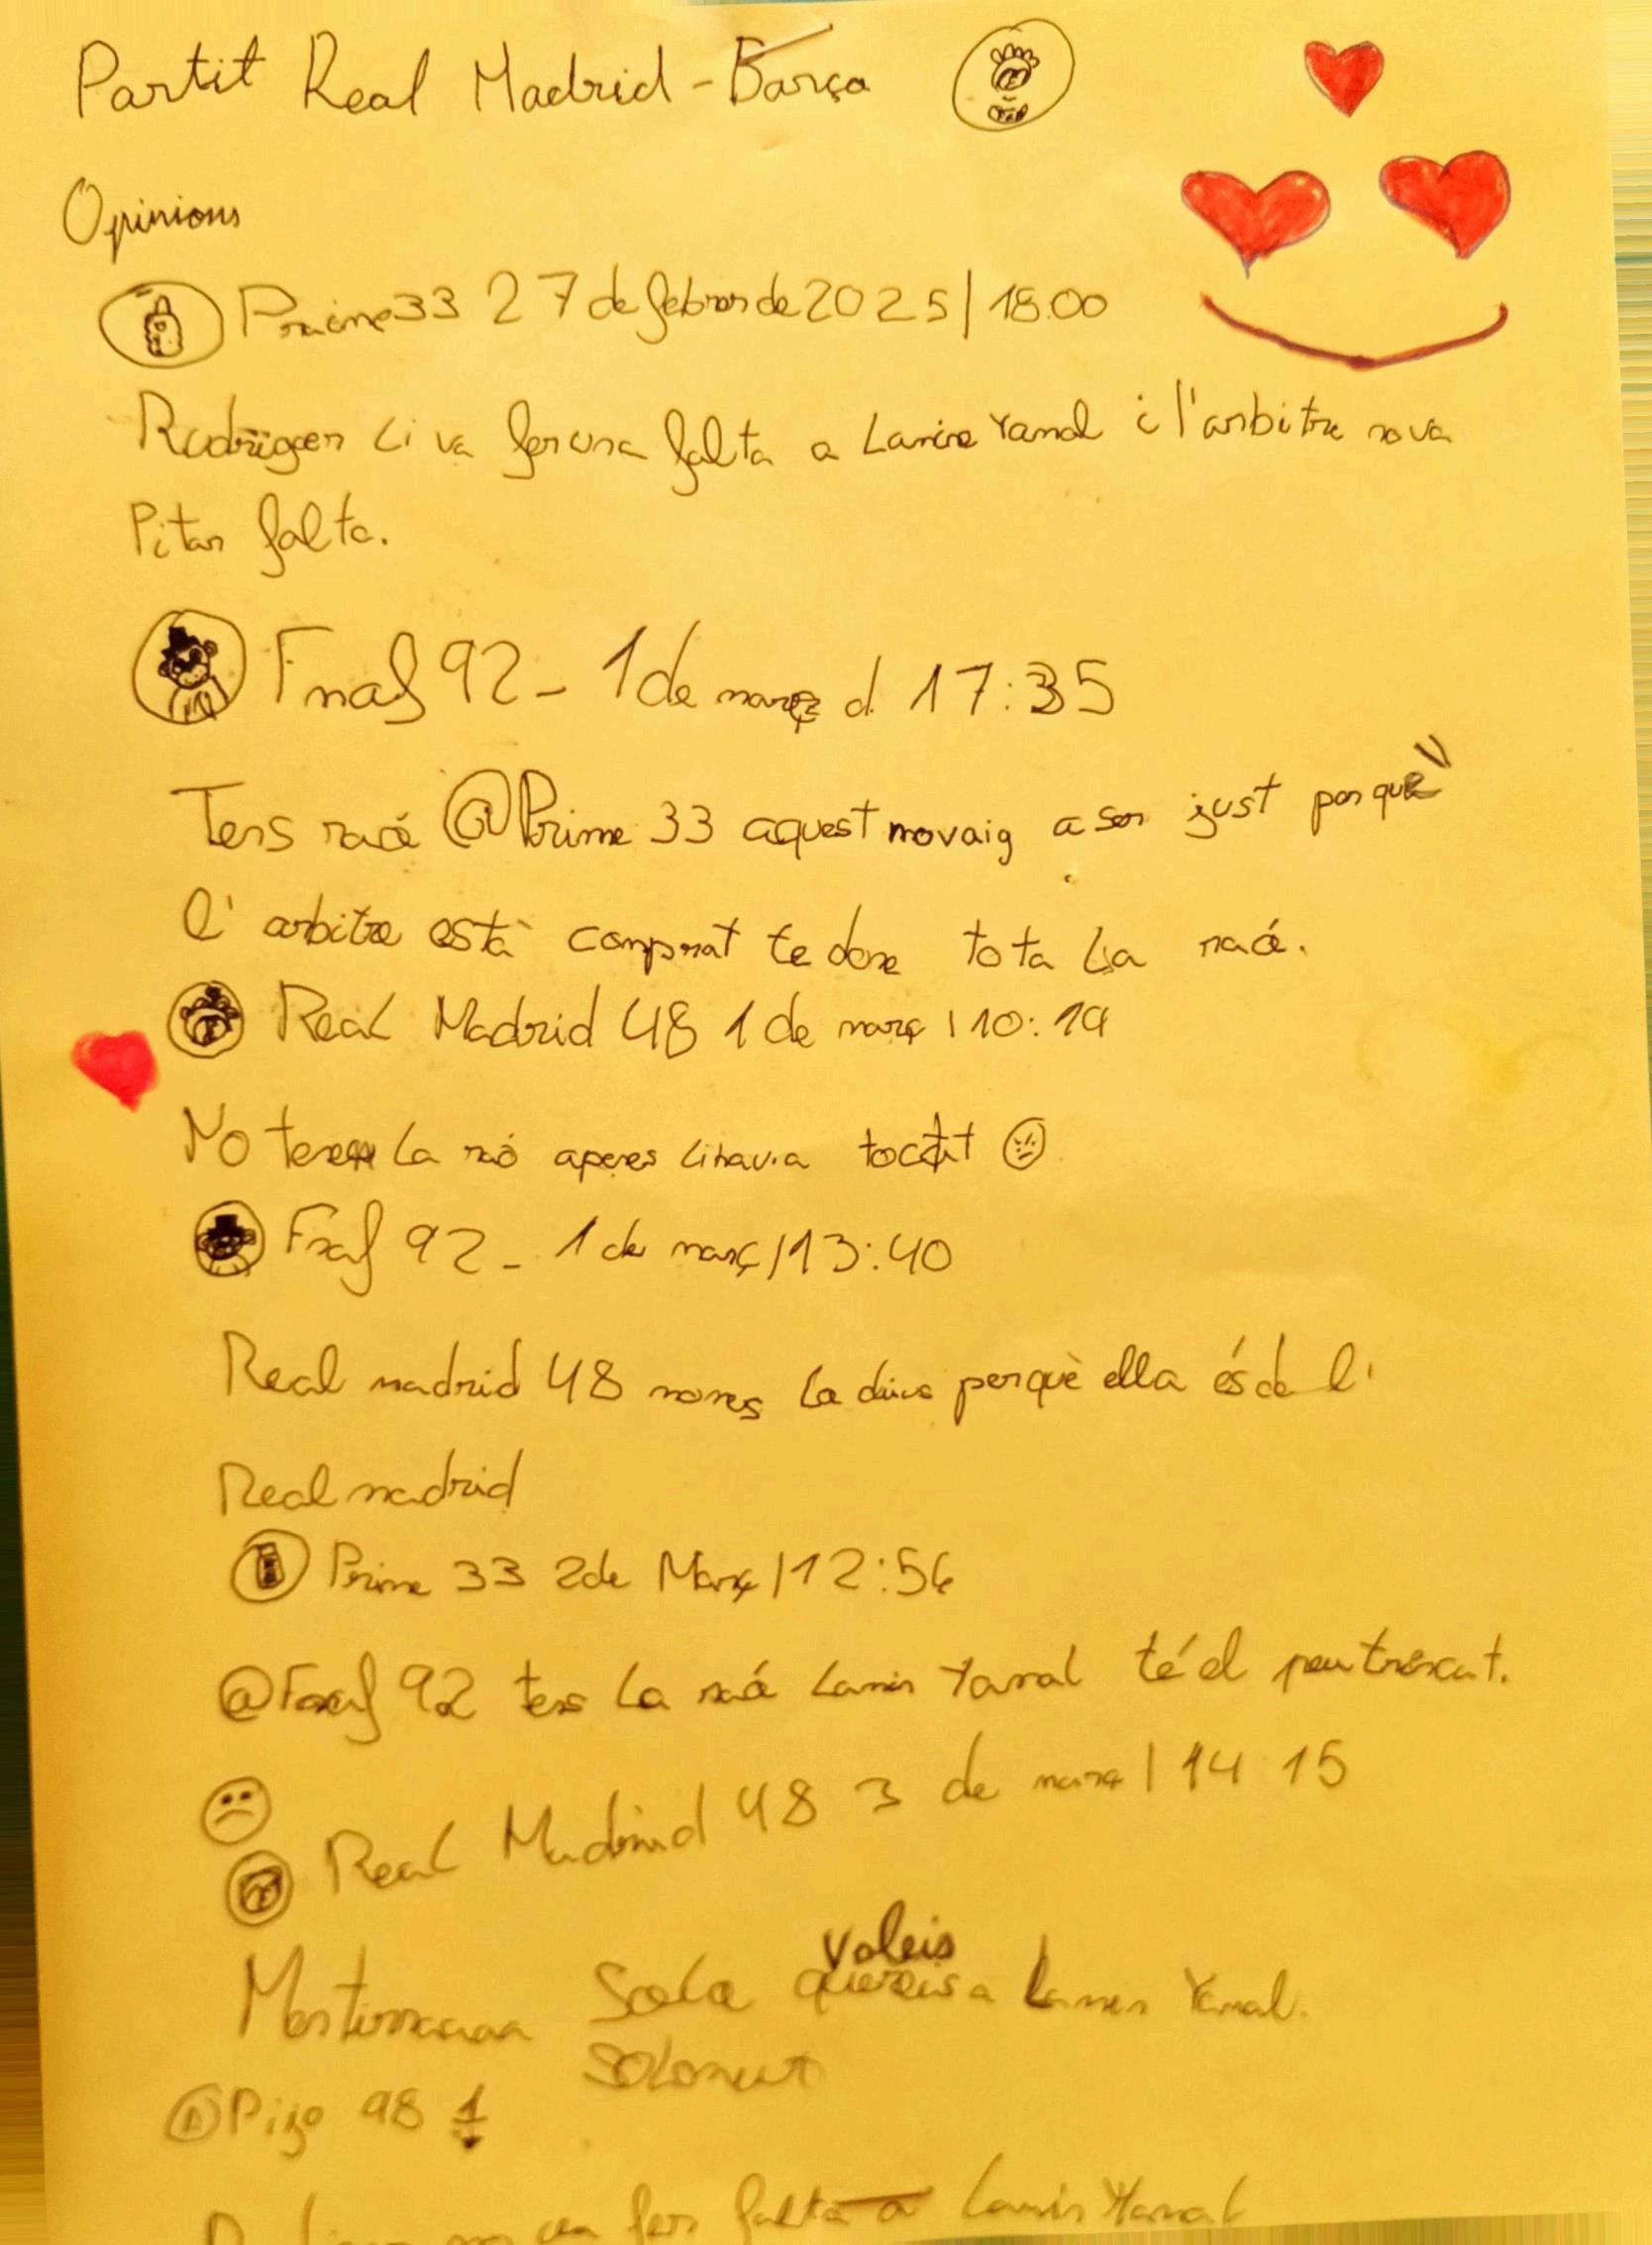 Partit Real Madrid - Barça
Opinions
Prime33 27 de febrer de 2025 | 18.00
Rodrigger li va fer una falta a Lamine Yamal i l'arbitre no va
Pitar falta.
Fnaf 92 - 1 de març d 17:35
Tens raó @Prime 33 aquest no vaig a ser just perquè
l'arbitre està comprat te done tota la raó.
Real Madrid 48 1 de març | 10:19
No tenen la raó apenes li havia tocat
Fnaf 92 - 1 de març | 13:40
Real madrid 48 nomes la dius perquè ella és de l'
Real madrid
Prime 33 2 de Març | 12:56
@Fnaf 92 tens la raó Lamin Yamal té el peu trencat.
Real Madrid 48 3 de març | 14 15
voleis
Sola quereis a Lamin Yamal.
Solament
Pizo 98 1
no va fer falta a Lamin Yamal